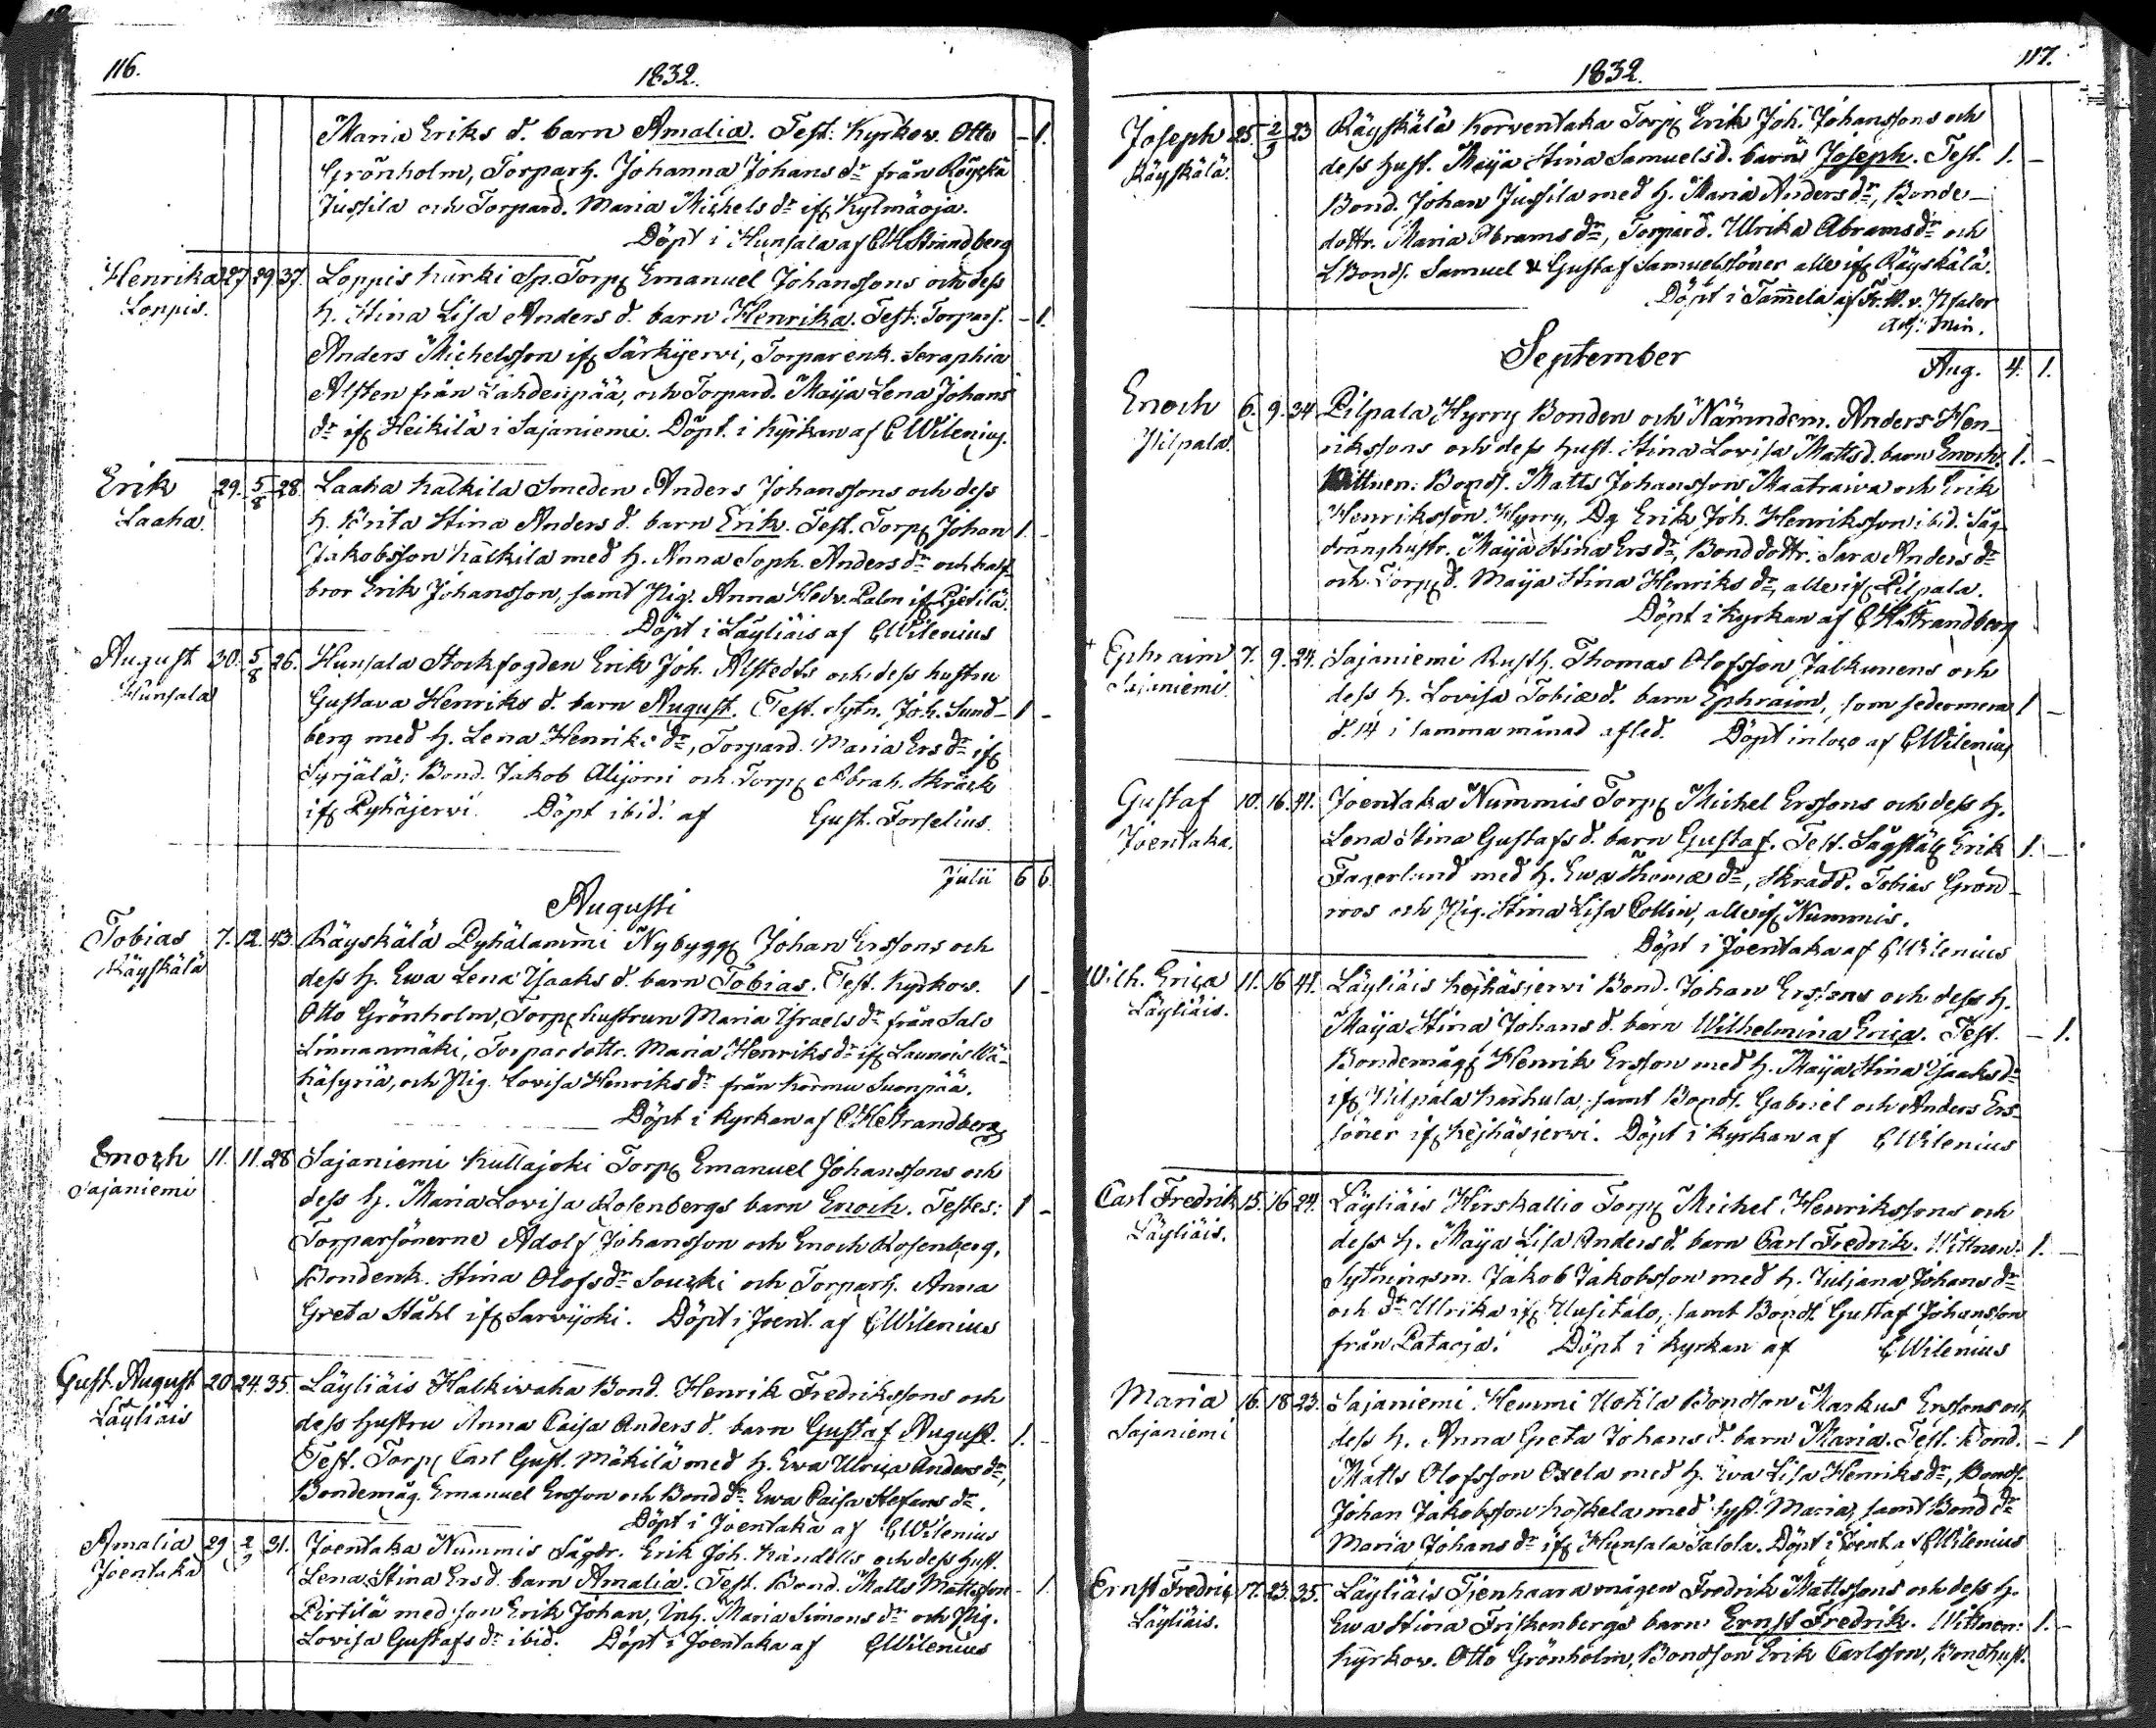 116.
1832.
Maria Eriks d. barn Amalia. Test: Kyrkow. Otto - 1.
Grönholm, Torparh. Johanna Johans dr från Räyskä
Jussila och Torpard. Maria Michels dr ifr Kylmäoja.
Döpt i Hunsala af CH Strandberg
Henrika 27. 29. 37. Loppis hurki Sp. Torpr Emanuel Johanssons och dess
Loppis. h. Stina Lisa Anders d. barn Henrika. Test: Torpars. - 1.
Anders Michelsson ifr Särkijerwi, Torparenk. Seraphia
Alsten från Lahdenpää, och Torpard. Maija Lena Johans
dr ifr Heikilä i Sajaniemi. Döpt i Kyrkan af C Wilenius.
Erik 29. 5/8 28 Laaha halkila Smeden Anders Johanssons och dess
Laaha. h. Brita Stina Anders d. barn Erik. Test. Torpr Johan 1. -
Jakobsson halkila med h. Anna Soph. Anders dr och half
bror Erik Johansson, samt Pig. Anna Hedv. Palen ifr Pietilä.
Döpt i Läyliäis af C Wilenius
August 30. 5/8 26. Hunsala Stockfogden Erik Joh. Alstedts och dess hustru
Hunsala Gustava Henriks d. barn August. Test. Sytn. Joh. Sund- 1 -
berg med h. Lena Henriks dr, Torpard. Maria Ers dr ifr
Syrjälä; Bond. Jakob Alijorri och Torpr Abrah. Skräck
ifr Pyhäjerwi. Döpt ibid. af Gust. Forselius.
Julii 6 6.
Augusti
Tobias 7. 12. 43. Räyskälä Pyhälammi Nybyggr Johan Erssons och
Räyskälä dess h. Ewa Lena Isaaks d. barn Tobias. Test. Kyrkow. 1 -
Otto Grönholm, Torpr hustrun Maria Israels dr från Salo
Linnanmäki, Torpardottr. Maria Henriks dr ifr Launois Wä-
häsyriä, och Pig. Lovisa Henriks dr från Kormu Suonpää.
Döpt i kyrkan af CH Strandberg
Enoch 11. 11. 28 Sajaniemi Kullajoki Torpr Emanuel Johanssons och
Sajaniemi dess h. Maria Lovisa Rosenbergs barn Enoch. Testes: 1 -
Torparsönerne Adolf Johansson och Enoch Rosenberg,
Bondenk. Stina Olofs dr Souki och Torparh. Anna
Greta Ståhl ifr Sarwijoki. Döpt i Joent. af C Wilenius
Gust. August 20 24. 35 Läyliäis Halkiwaha Bond. Henrik Fredrikssons och
Läyliäis dess hustru Anna Caisa Anders d. barn Gustaf August. 1. -
Test. Torpr Carl Gust. Mäkilä med h. Ewa Ulrica Anders dr,
Bondemåg. Emanuel Ersson och Bond dr Ewa Caisa Stefans dr.
Döpt i Joentaka af C Wilenius
Amalia 29 2/9 31. Joentaka Nummis Sågdr. Erik Joh. Kändells och dess hust.
Joentaka Lena Stina Ers d. barn Amalia. Test. Bond. Matts Mattsson - 1.
Pirtilä med son Erik Johan, Inh. Maria Simons dr och Pig.
Lovisa Gustafs dr ibid. Döpt i Joentaka af C Wilenius
1832.
117.
Joseph 25. 2/9 23 Räyskälä Korventaka Torpr Erik Joh. Johanssons och
Räyskälä. dess hust. Maija Stina Samuels d. barn Joseph. Test. 1. -
Bond. Johan Jussila med h. Maria Anders dr, Bonde-
dottr. Maria Abrams dr, Torpard. Ulrika Abrams dr och
Bonds. Samuel & Gustaf Samuelssöner alle ifr Räyskälä.
Döpt i Tammela af Fr. W. v. Pfaler
Adj: Min.
September Aug. 4. 1.
Enoch 6. 9. 34 Pilpala Hyrry Bonden och Nämndem. Anders Hen-
Pilpala. rikssons och dess hust. Stina Lovisa Matts d. barn Enoch. 1. -
Wittnen: Bonds. Matts Johansson Maatrawa och Erik
Henriksson Hyrry, Dg Erik Joh. Henriksson ibid. Såg-
dränghustr. Maija Stina Ers dr, Bonddottr. Sara Anders dr
och Torpr d. Maija Stina Henriks dr, alle ifr Pilpala.
Döpt i Kyrkan af CH Strandberg
+ Ephraim 7. 9. 24. Sajaniemi Rusth. Thomas Olofsson Jalkunens och
Sajaniemi. dess h. Lovisa Tobiæ d. barn Ephraim, som sedermera 1 -
d. 14 i samma månad afled. Döpt in loco af C Wilenius
Gustaf 10. 16. 41. Joentaka Nummis Torpr Michel Erssons och dess h.
Joentaka. Lena Stina Gustafs d. barn Gustaf. Test. Sågställ Erik 1. -
Fagerlund med h. Ewa Thomæ dr, Skrädd. Tobias Grön-
roos och Pig. Stina Lisa Collin, alle ifr Nummis.
Döpt i Joentaka af C Wilenius
Wilh. Erica 11. 16 41. Läyliäis Kejhäsjerwi Bond. Johan Erssons och dess h.
Läyliäis. Maija Stina Johans d. barn Wilhelmina Erica. Test. - 1.
Bondemågr Henrik Ersson med h. Maija Stina Isaaks dr
ifr Pilpala Karhula, samt Bonds. Gabriel och Anders Ers-
söner ifr Kejhäsjerwi. Döpt i kyrkan af C Wilenius
Carl Fredrik 15. 16 24. Läyliäis Hirskallio Torpr Michel Henrikssons och
Läyliäis. dess h. Maija Lisa Anders d. barn Carl Fredrik. Wittnen: 1. -
Sytningsm. Jakob Jakobsson med h. Juliana Johans dr
och dr Ulrika ifr Uusitalo, samt Bonds. Gustaf Johansson
från Pataoja. Döpt i kyrkan af C Wilenius
Maria 16. 18 23. Sajaniemi Hemmi Uotila Bondson Markus Erssons och
Sajaniemi dess h. Anna Greta Johans d. barn Maria. Test. Bond. - 1
Matts Olofsson Oxela med h. Eva Lisa Henriks dr, Bonds.
Johan Jakobsson Koskela med syst. Maria, samt Bond dr
Maria Johans dr ifr Hunsala Talola. Döpt i Joent. af C Wilenius
Ernst Fredric 17. 23. 35. Läyliäis Tjenhaara mågen Fredrik Mattssons och dess h.
Läyliäis. Ewa Stina Friskenbergs barn Ernst Fredrik. Wittnen: 1. -
Kyrkow. Otto Grönholm, Bondson Erik Carlsson, Bondhust.